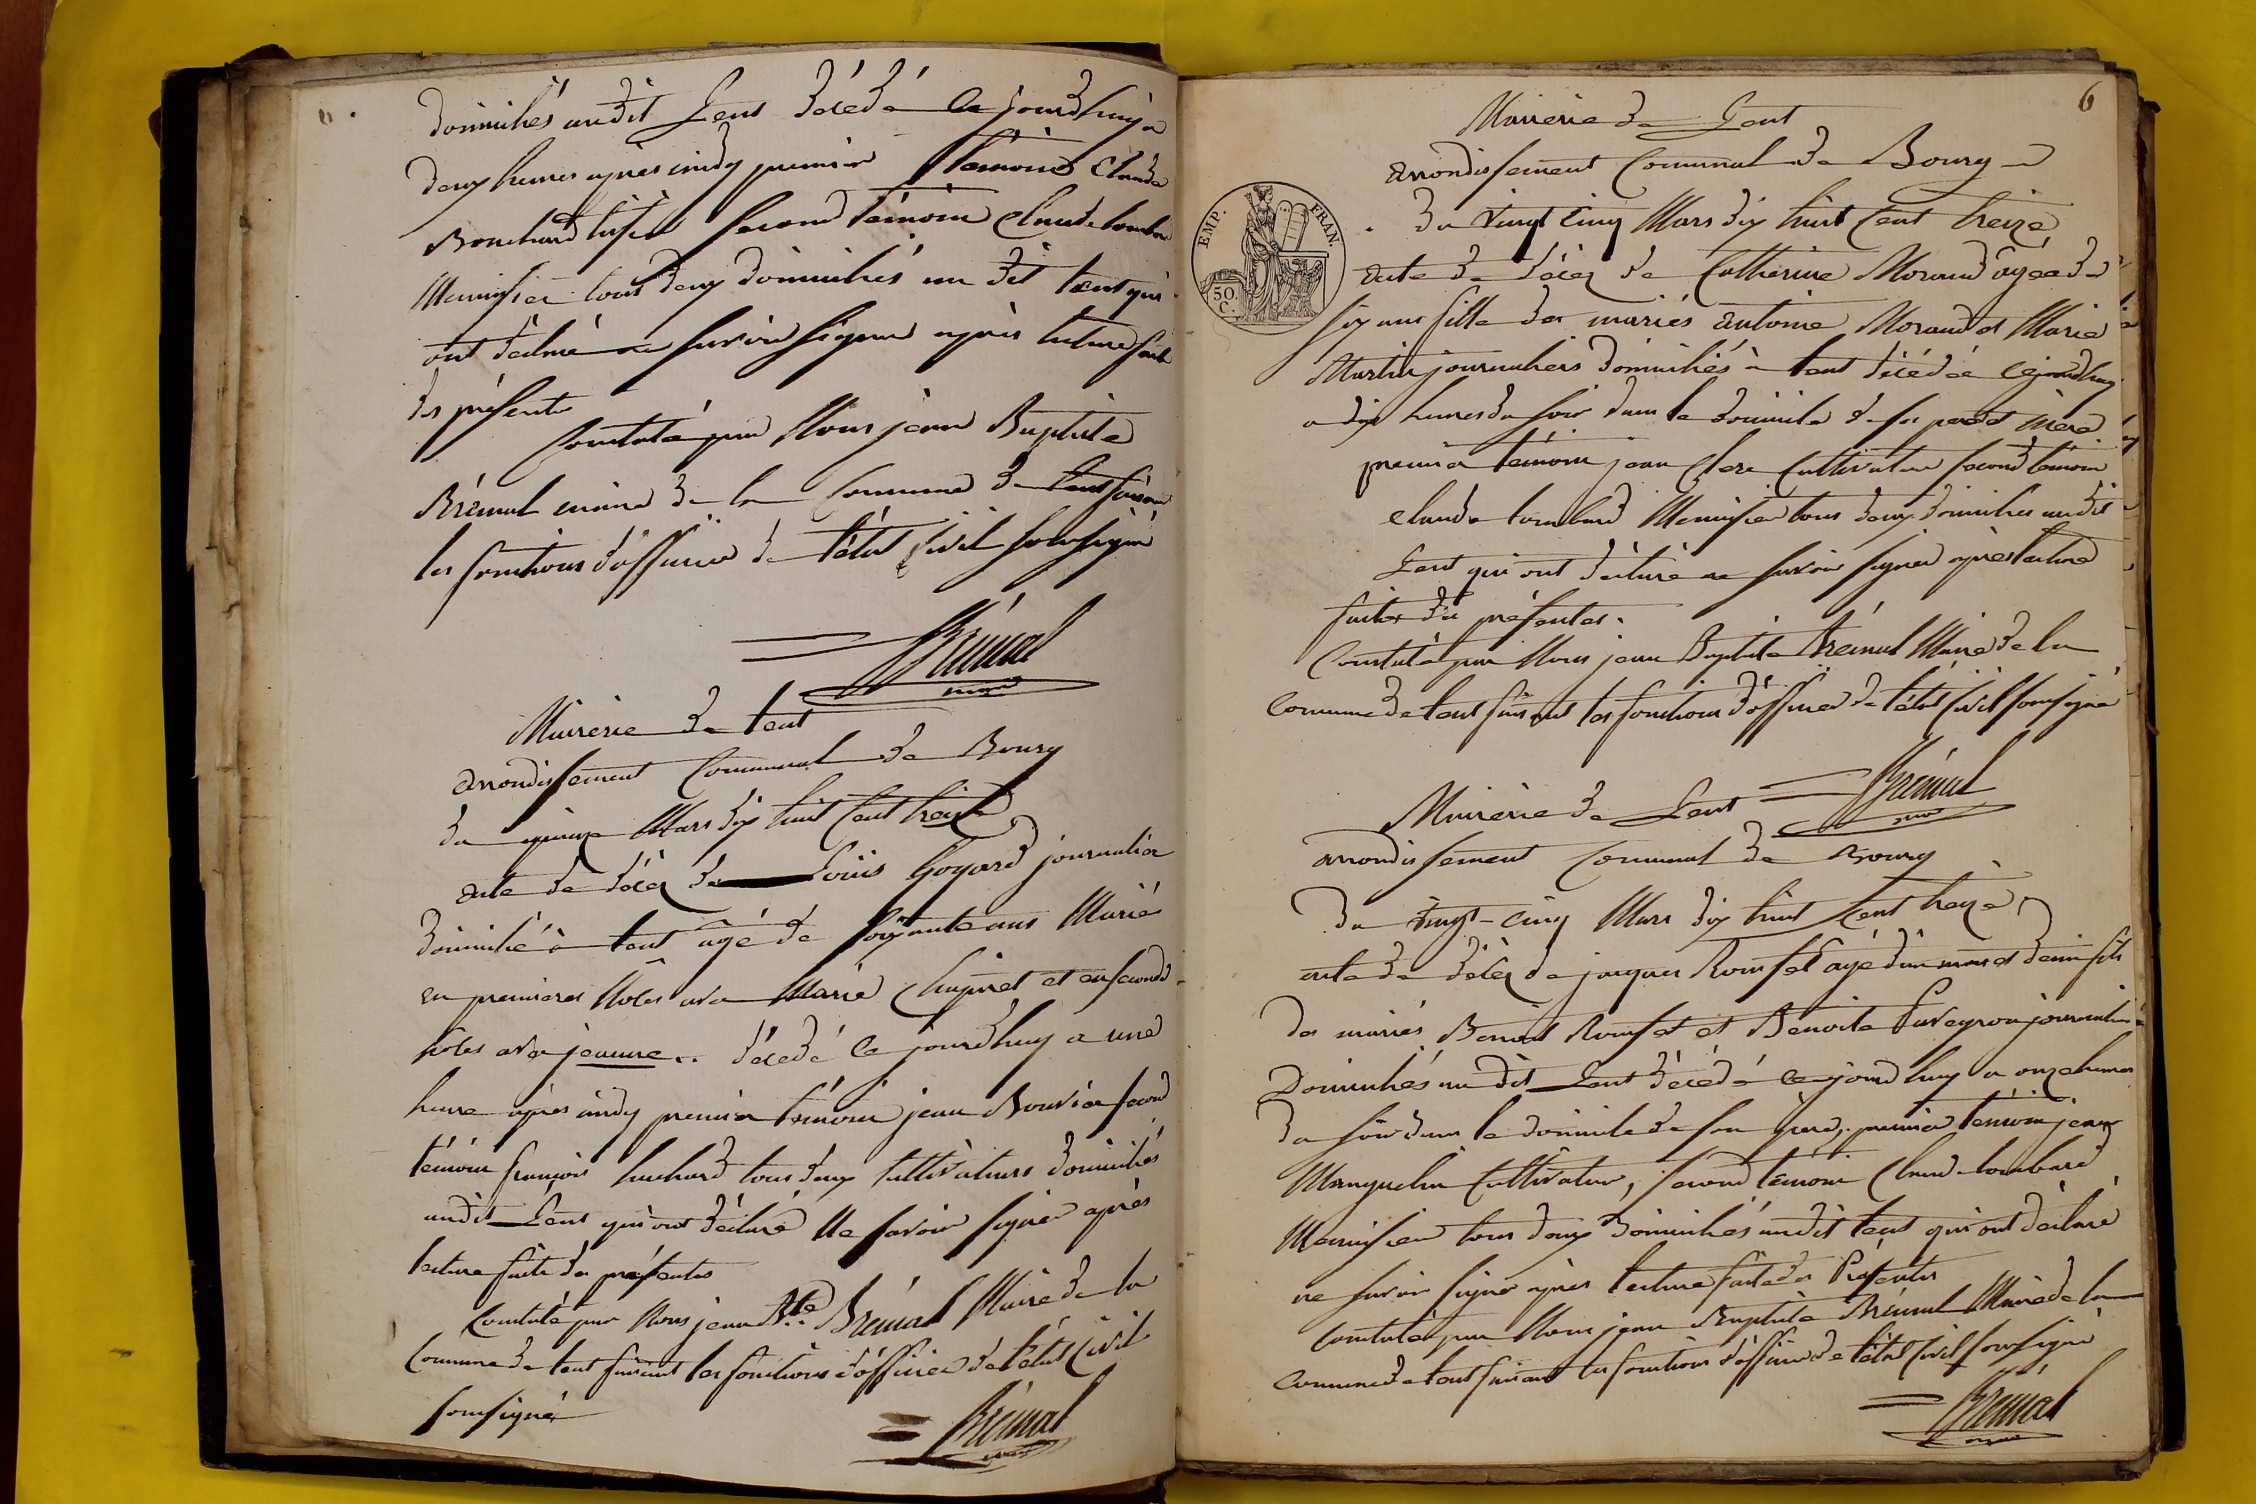 domiciliés audit Lent décédé ce jourdhuy a
deux heures apres midy premier témoin Claude
Bouchard tisier second témoin Claude Lombard
Menuisier tous deux domiciliés au dit Lent qui
ont déclaré ne savoir signer après lecture faite
des présentes
Constaté par Nous jean Baptiste
Brémal maire de la Commune de Lent faisant
les fonctions d'officier de l'état Civil soussigné
Brémal
maire
Mairerie de Lent
arrondissement Communal de Bourg
du quinze Mars dix huit Cent treize
acte de décez de Loüis Goyard journalier
domicilié à Lent âgé de soixante ans Marié
en premieres Nôces avec Marie Chapuret et en secondes
nôces avec jeanne .. décédé ce jourdhuy a une
heure après midy premier témoin jean Bouvier second
témoin françois huchard tous deux Cultivateurs domiciliés
audit Lent qui ont déclaré Ne savoir signer après
lecture faite des présentes
Constaté par Nous jean Bte Brémal Maire de la
Commune de Lent faisant les fonctions d'officier de l'état Civil
soussigné
Brémal
maire
6
Mairerie de Lent
arrondissement Communal de Bourg
EMP. FRAN.
50. C.
du vingt cinq Mars dix huit Cent treize
acte de décez de Catherine Morand âgée de
six ans fille des mariés antoine Morand et Marie
Martin journaliers domiciliés à Lent décédée cejourdhuy
a dix heures du soir dans le domicile de ses père et mère
premier témoin jean Clere Cultivateur second témoin
claude Lombard Menuisier tous deux domiciliés audit
Lent qui ont déclaré ne savoir signer après lecture
faite des présentes.
Constaté par Nous jean Baptiste Brémal Maire de la
Commune de Lent faisant les fonctions d'officier de l'état Civil soussigné
Brémal
maire
Mairerie de Lent
arrondissement Communal de Bourg
du vingt-cinq Mars dix huit Cent treize
acte de décez de jacques Rousset agé d'un mois et demi fils
des mariés Benoit Rousset et Benoite Paveyron journaliers
Domiciliés au dit Lent décédé ce jourdhuy a onze heures
du soir dans le domicile de son père, premier témoin jean
Manguelin Cultivateur, second témoin Claude Lombard
Menuisier tous deux domiciliés audit Lent qui ont déclaré
ne savoir signer après lecture faite des Présentes
Constaté par Nous jean Baptiste Brémal Maire de la
Commune de Lent faisant les fonctions d'officier de l'état Civil soussigné
Brémal
maire